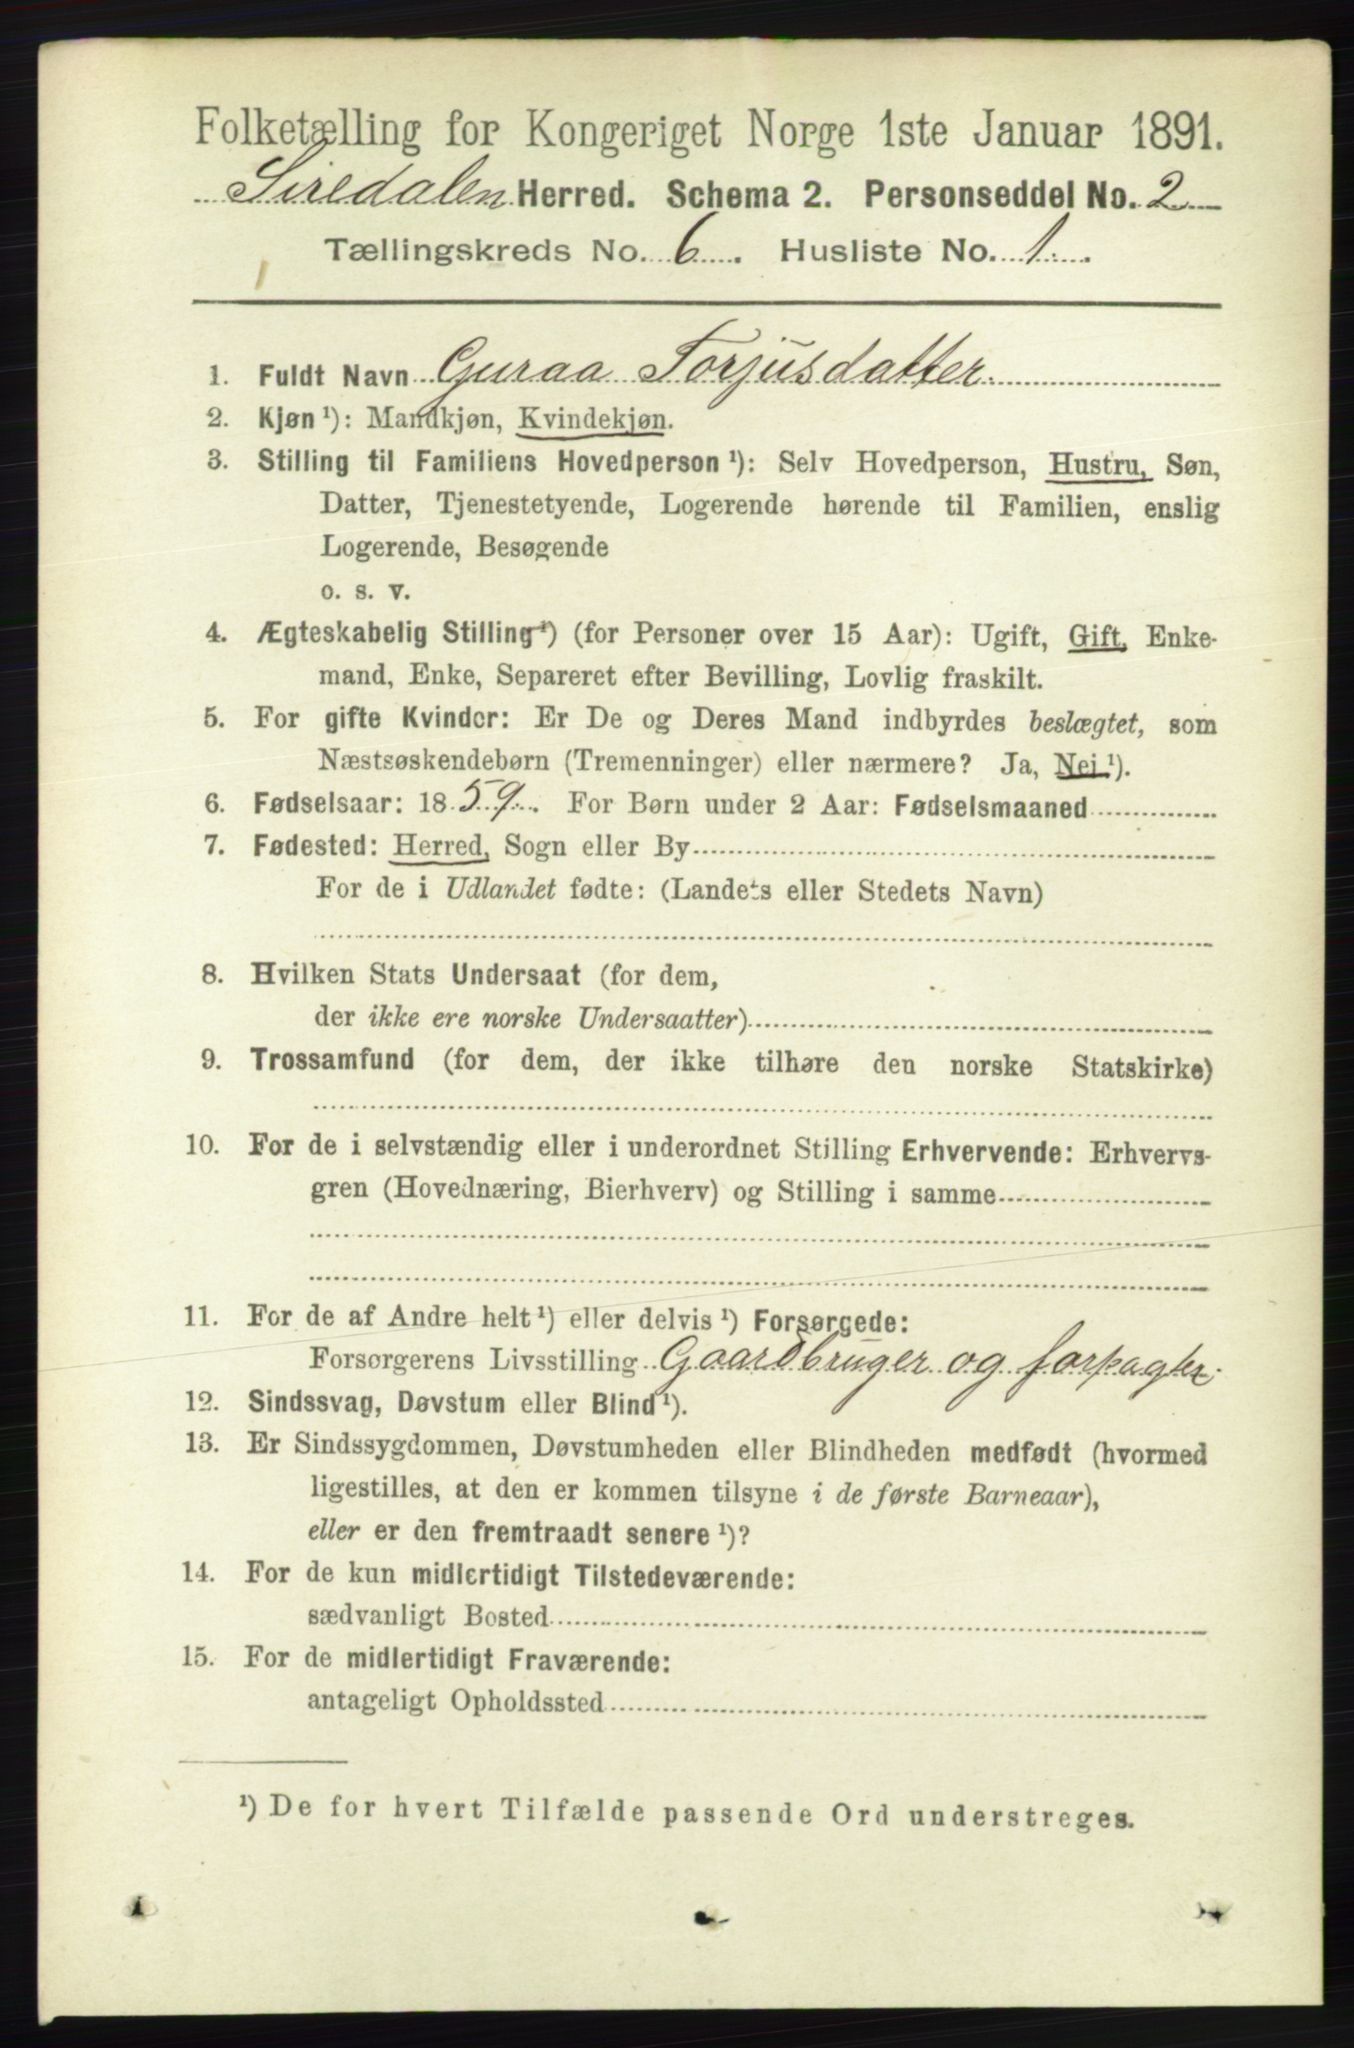 Folketælling for Kongeriget Norge 1ste Januar 1891.
Siredalen Herred. Schema 2. Personseddel No. 2
Tællingskreds No. 6. Husliste No. 1.
1. Fuldt Navn Guraa Torjusdatter.
2. Kjøn ¹): Mandkjøn, Kvindekjøn.
3. Stilling til Familiens Hovedperson ¹): Selv Hovedperson, Hustru, Søn,
Datter, Tjenestetyende, Logerende hørende til Familien, enslig
Logerende, Besøgende
o. s. v.
4. Ægteskabelig Stilling ¹) (for Personer over 15 Aar): Ugift, Gift, Enke-
mand, Enke, Separeret efter Bevilling, Lovlig fraskilt.
5. For gifte Kvinder: Er De og Deres Mand indbyrdes beslægtet, som
Næstsøskendebørn (Tremenninger) eller nærmere? Ja, Nei ¹).
6. Fødselsaar: 1859. For Børn under 2 Aar: Fødselsmaaned
7. Fødested: Herred, Sogn eller By
For de i Udlandet fødte: (Landets eller Stedets Navn)
8. Hvilken Stats Undersaat (for dem,
der ikke ere norske Undersaatter)
9. Trossamfund (for dem, der ikke tilhøre den norske Statskirke)
10. For de i selvstændig eller i underordnet Stilling Erhvervende: Erhvervs-
gren (Hovednæring, Bierhverv) og Stilling i samme
11. For de af Andre helt ¹) eller delvis ¹) Forsørgede:
Forsørgerens Livsstilling Gaardbruger og forpagter.
12. Sindssvag, Døvstum eller Blind ¹).
13. Er Sindssygdommen, Døvstumheden eller Blindheden medfødt (hvormed
ligestilles, at den er kommen tilsyne i de første Barneaar),
eller er den fremtraadt senere ¹)?
14. For de kun midlertidigt Tilstedeværende:
sædvanligt Bosted
15. For de midlertidigt Fraværende:
antageligt Opholdssted
¹) De for hvert Tilfælde passende Ord understreges.